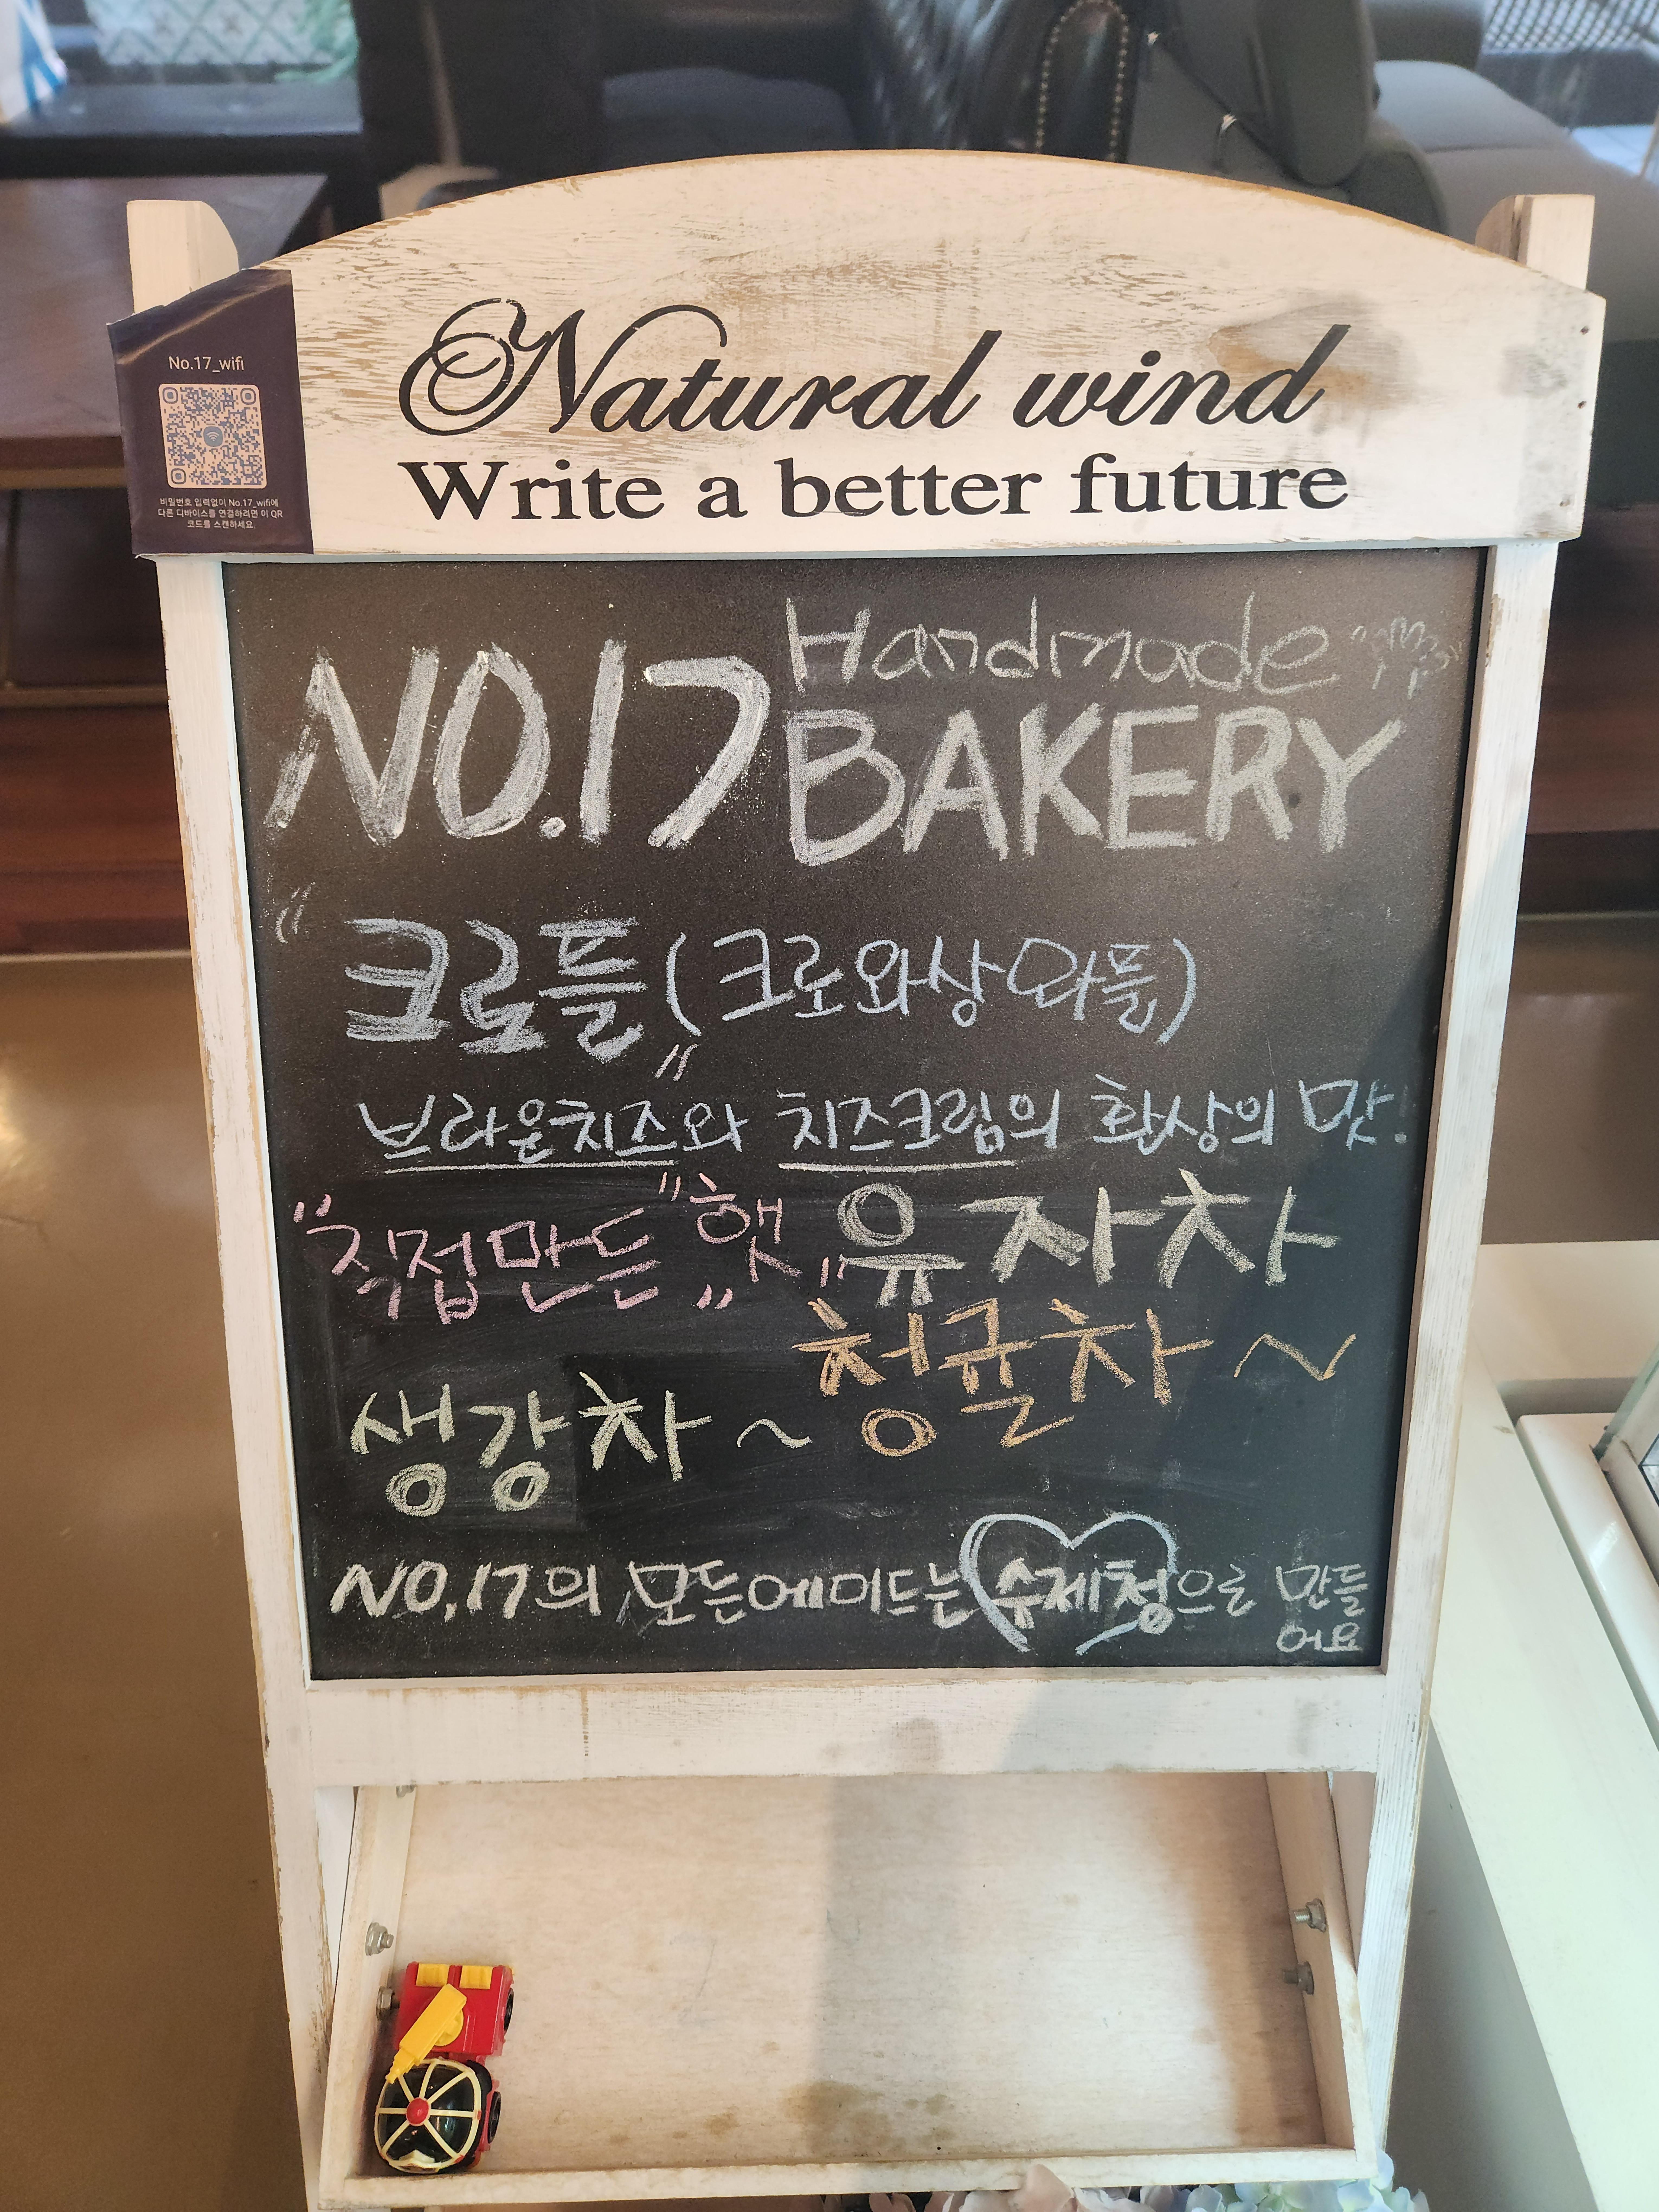 Natural wind
Write a better future
No.17_wifi
비밀번호 입력없이 No.17_wifi에
다른 디바이스를 연결하려면 이 QR
코드를 스캔하세요.
NO.17 Handmade
BAKERY
"크로플" (크로와상와플)
브라운치즈와 치즈크림의 환상의 맛!
"직접만든" "햇" 유자차
청귤차~
생강차~
NO,17의 모든에이드는 수제청으로 만들
어요